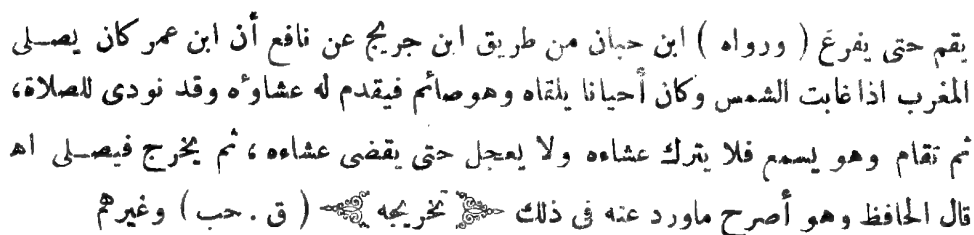 يقم حتى يفرغ ( ورواه ) ابن حبان من طريق ابن جريج عن نافع أن ابن عمر كان يصلى
المغرب اذا غابت الشمس وكان أحيانا يلقاه وهو صائم فيقدم له عشاوءه وقد نودى للصلاة،
ثم تقام وهو يسمع فلا يترك عشاءه ولا يعجل حتى يقضى عشاءه ، ثم يخرج فيصلى اه
قال الحافظ وهو أصرح ماورد عنه فى ذلك تخريجه ( ق . حب ) وغيرهم